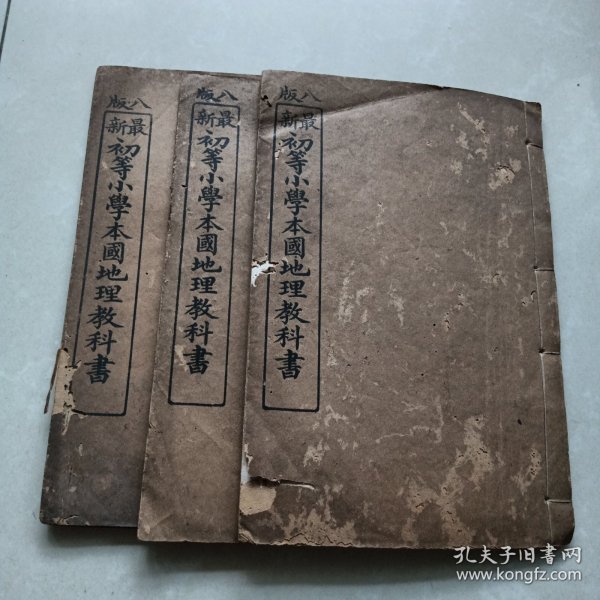 八版
最新
初等小學本國地理教科書
八版
最新
初等小學本國地理教科書
八版
最新
初等小學本國地理教科書
孔夫子旧書网
www.kongfz.com